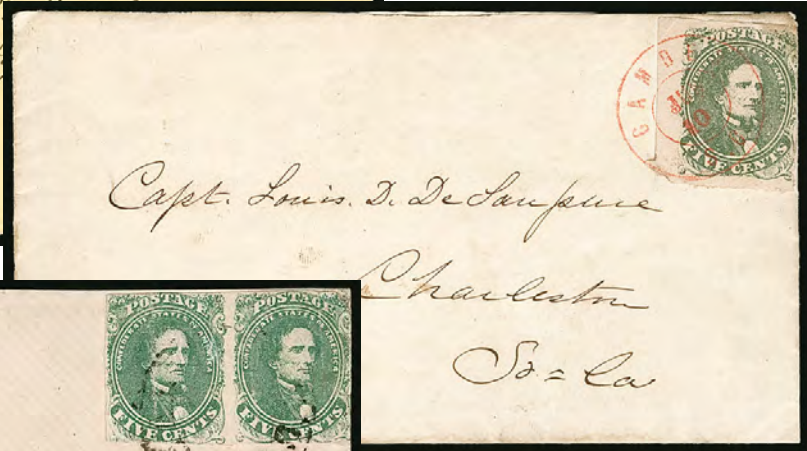 POSTAGE
CONFEDERATE STATES OF AMERICA
FIVE CENTS
CAMD
10
Capt. Louis. D. De Saussure
Charleston
So = Ca
POSTAGE
CONFEDERATE STATES OF AMERICA
FIVE CENTS
POSTAGE
CONFEDERATE STATES OF AMERICA
FIVE CENTS